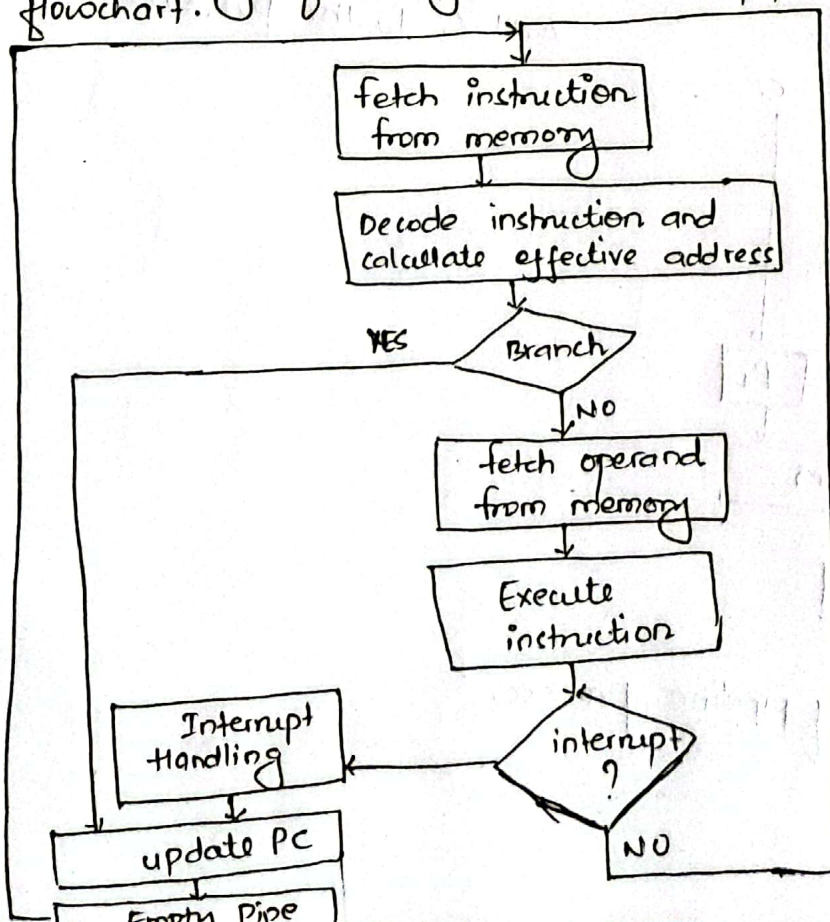 flowchart.
fetch instruction
from memory
Decode instruction and
calculate effective address
YES
Branch
NO
fetch operand
from memory
Execute
instruction
Interrupt
Handling
interrupt
?
update PC
NO
Empty Pipe